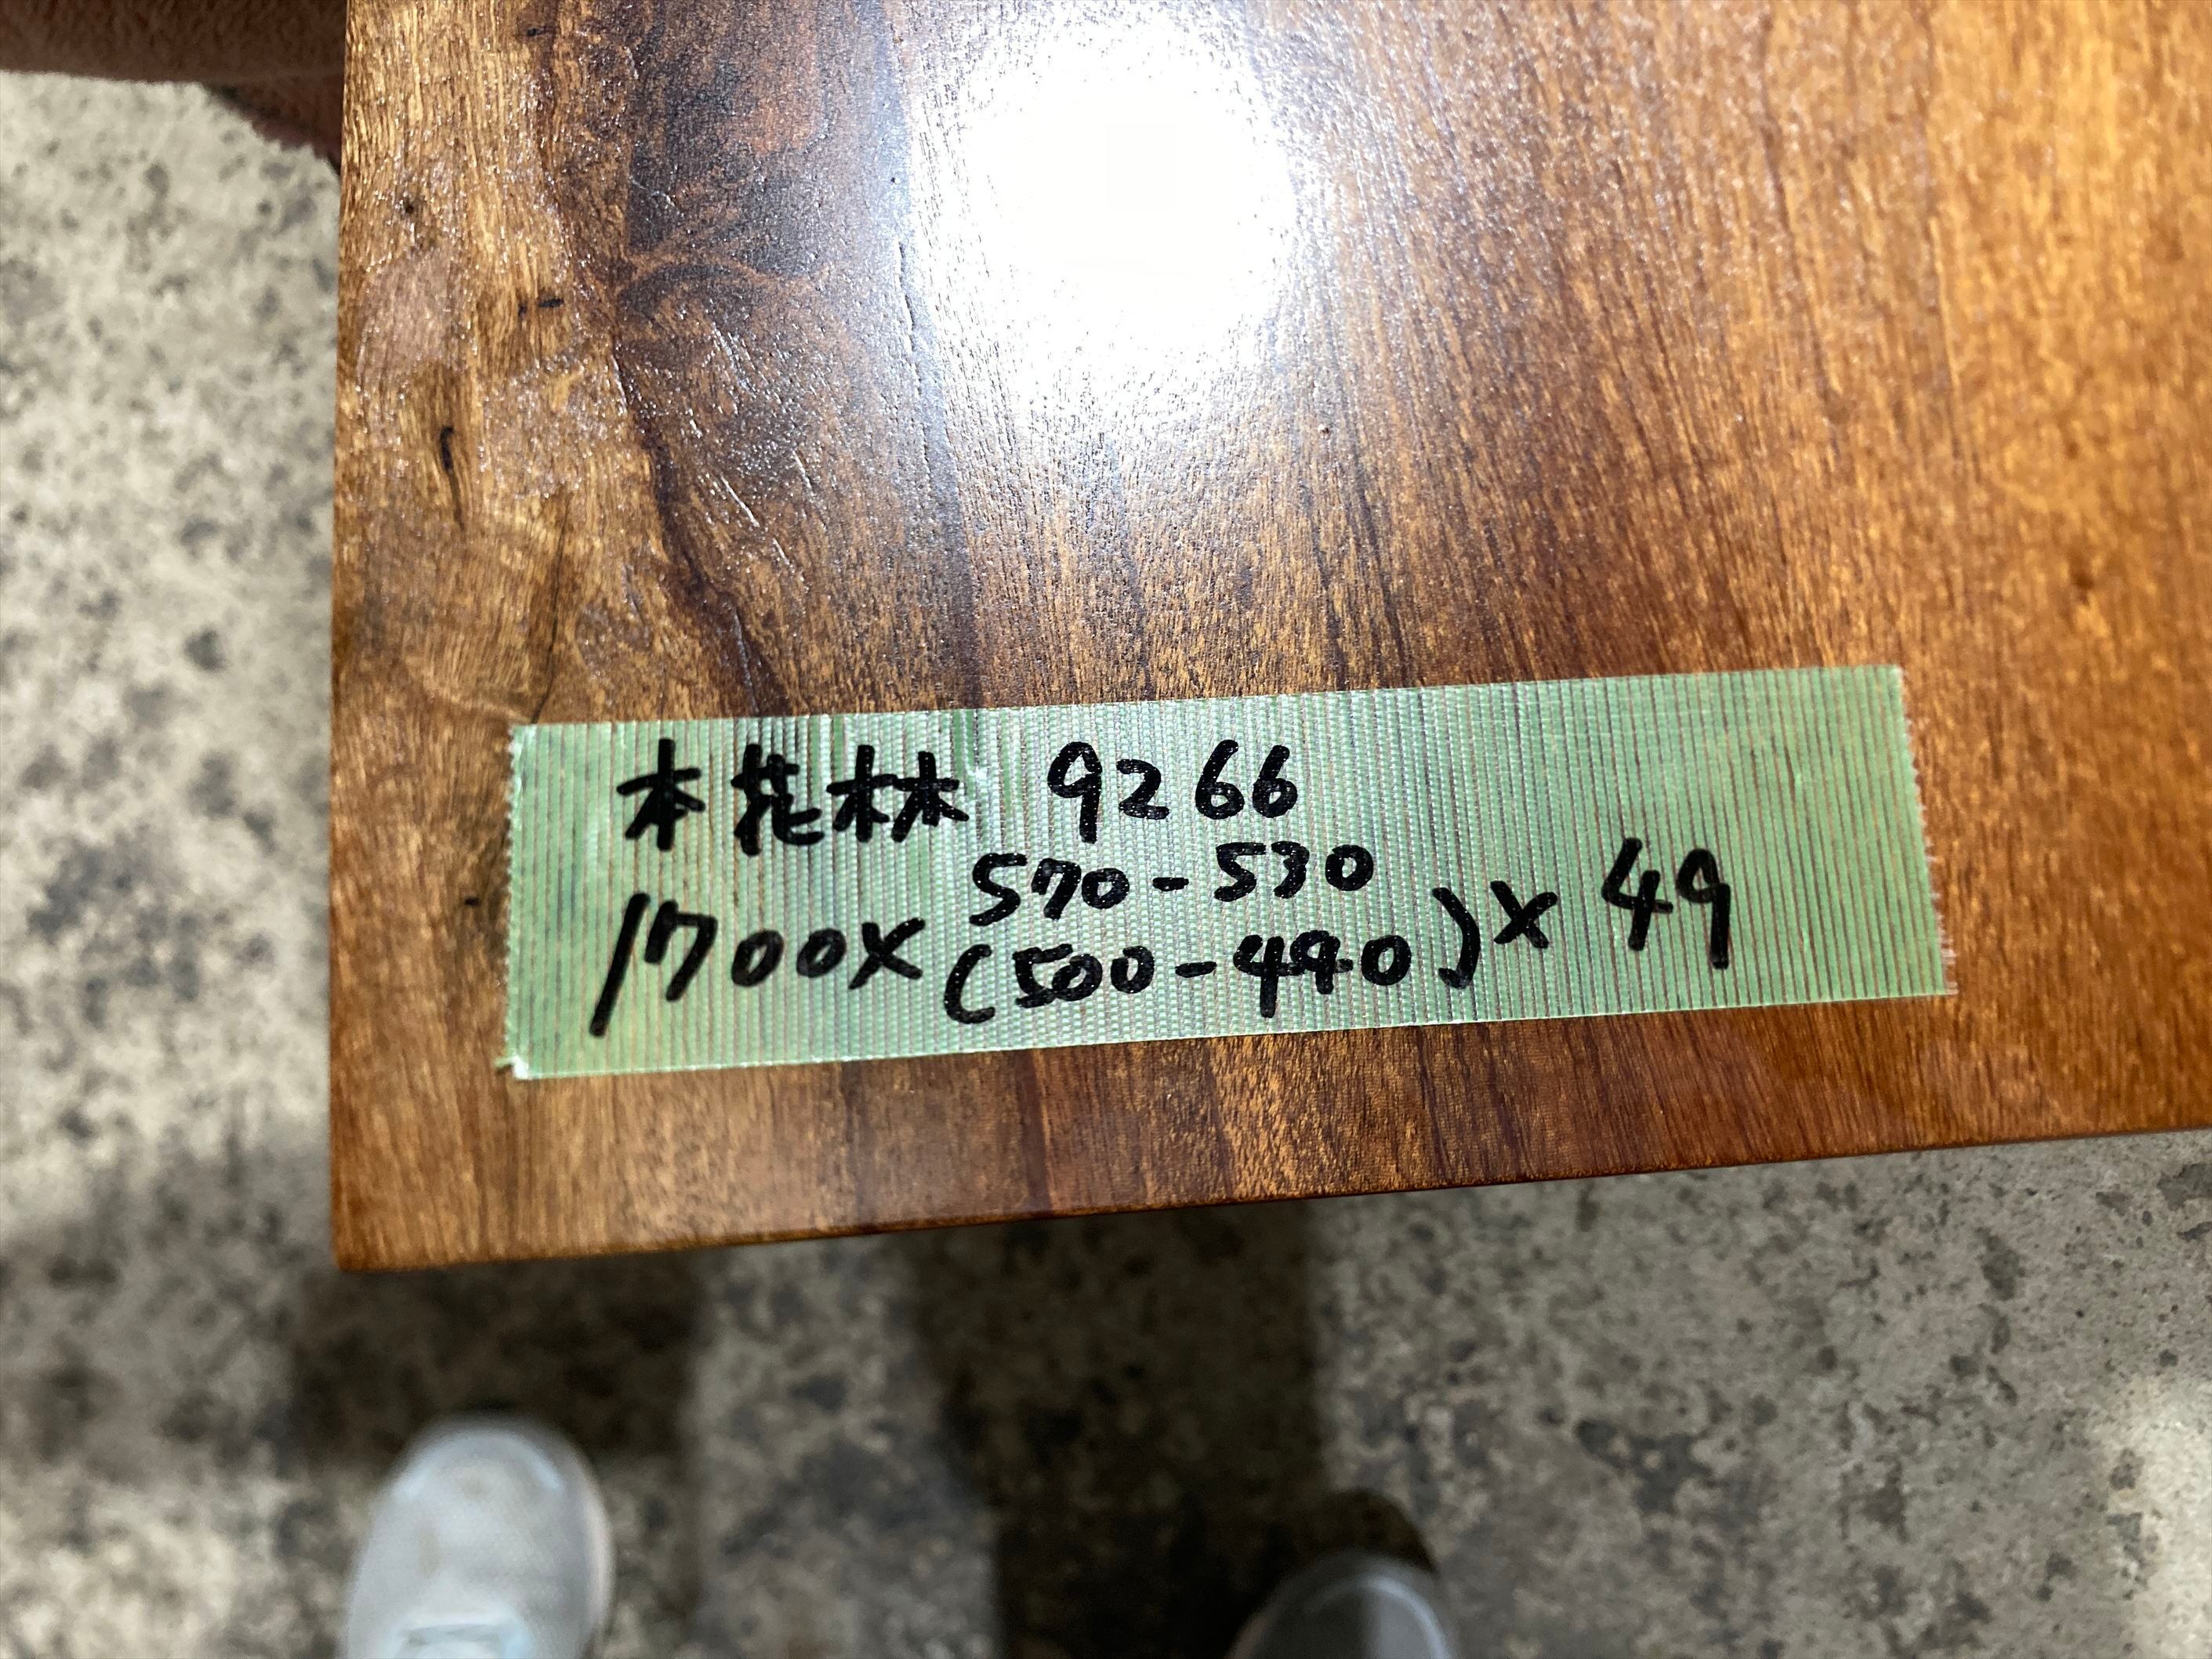 本花林 9266
570-530
1700×(500-490)×49